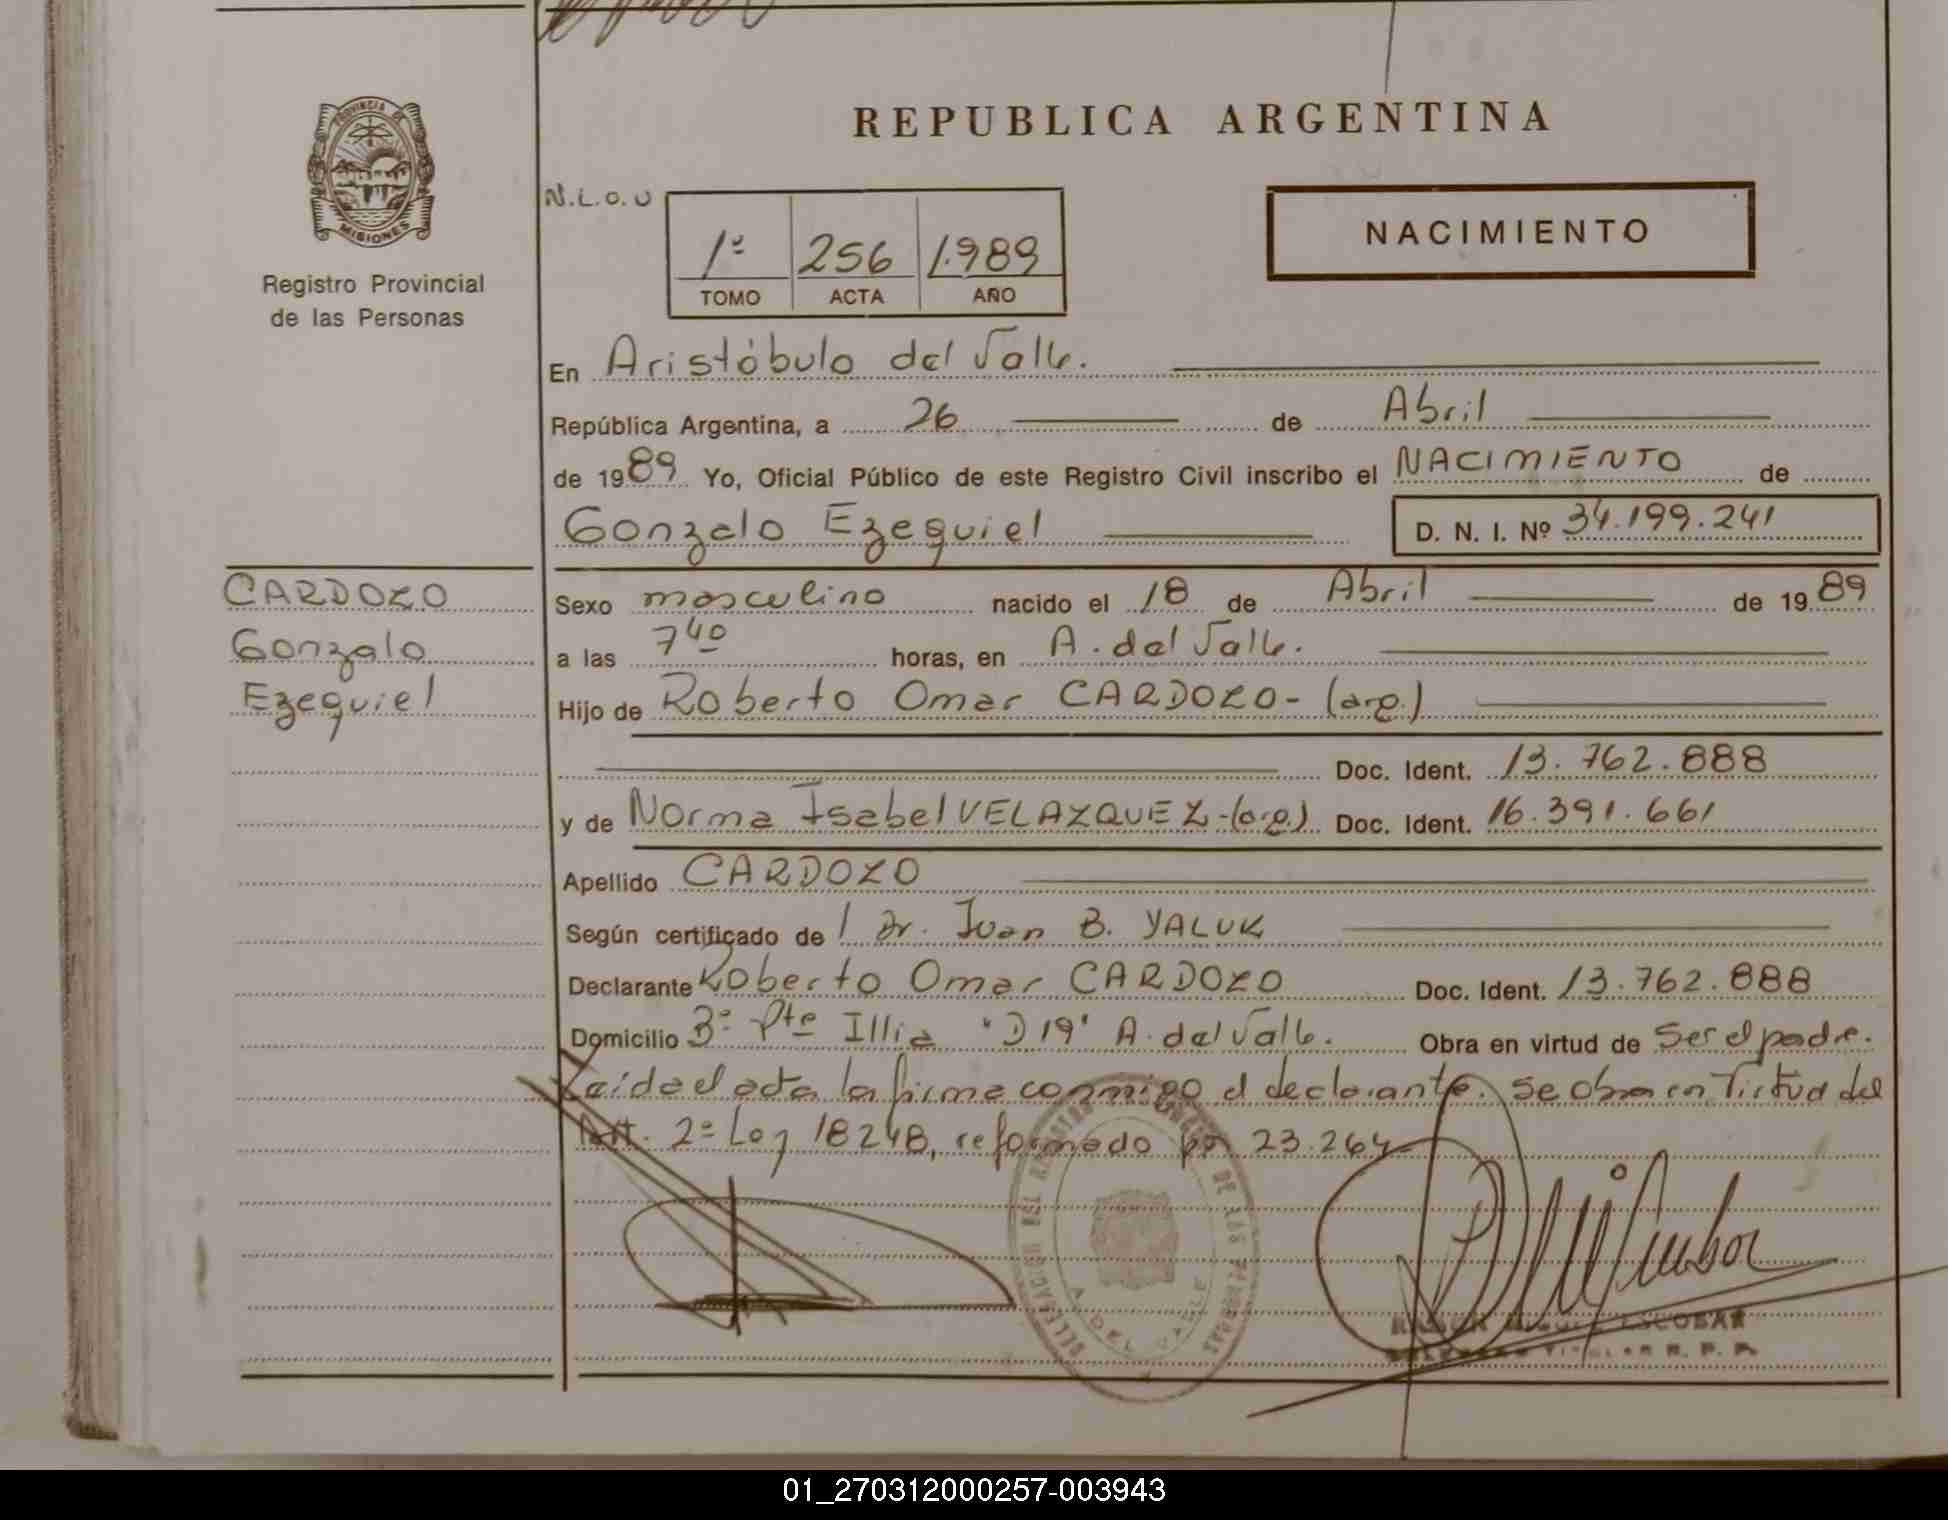 REPUBLICA ARGENTINA
PROVINCIA DE
MISIONES
Registro Provincial
de las Personas
N.L.O.U
1º 256 1.989
TOMO ACTA AÑO
NACIMIENTO
En Aristóbulo del Valle.
República Argentina, a 26 de Abril
de 1989 Yo, Oficial Público de este Registro Civil inscribo el NACIMIENTO de
Gonzalo Ezequiel D. N. I. Nº 34.199.241
CARDOZO
Gonzalo
Ezequiel
Sexo masculino nacido el 18 de Abril de 1989
a las 7 40 horas, en A. del Valle.
Hijo de Roberto Omar CARDOZO- (arg.)
Doc. Ident. 13.762.888
y de Norma Isabel VELAZQUEZ-(arg.) Doc. Ident. 16.391.661
Apellido CARDOZO
Según certificado de l Dr. Juan B. YALUK
Declarante Roberto Omar CARDOZO Doc. Ident. 13.762.888
Domicilio 3º Pte Illia "D19" A. del Valle. Obra en virtud de Ser el padre.
Leída el acta la firma conmigo el declarante. Se obra en Virtud del
Art. 2º Ley 18248, reformado por 23.264
DELEGACION DEL REGISTRO DE LAS PERSONAS
A. DEL VALLE
RAMON MIGUEL ESCOBAR
DELEGADO TITULAR R. P. P.
01_270312000257-003943